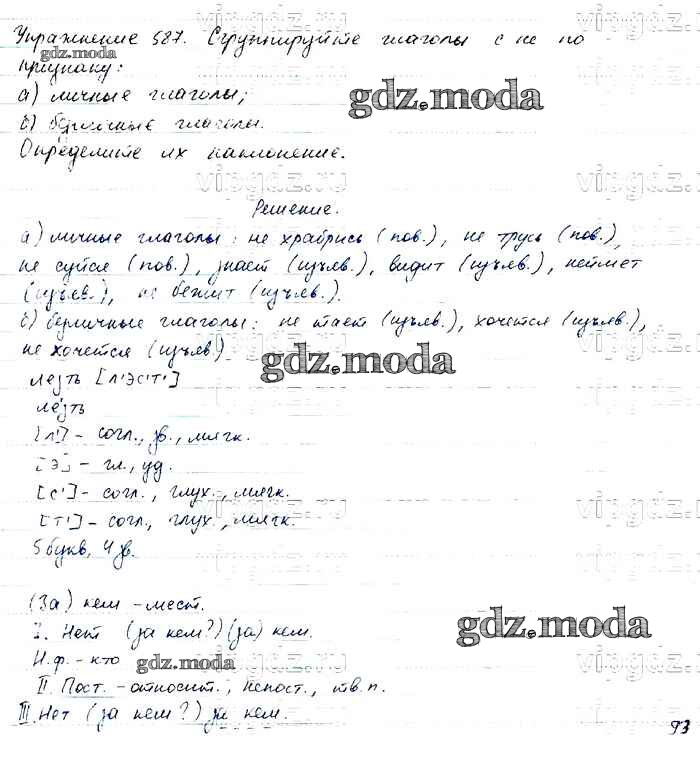 Упражнение 587. Сгруппируйте глаголы с не по
gdz.moda
признаку:
а) личные глаголы;
gdz.moda
б) безличные глаголы.
Определите их наклонение.
vipgdz.ru
Решение.
а) личные глаголы: не храбрись (пов.), не трусь (пов.),
не суйся (пов.), знает (изъяв.), видит (изъяв.), неймет
(изъяв.), не бежит (изъяв.).
б) безличные глаголы: не тает (изъяв.), хочется (изъяв.),
не хочется (изъяв)
gdz.moda
лезть [л'эс'т']
лезть
[л'] - согл., зв., мягк.
[э] - гл., уд.
[с'] - согл., глух., мягк.
[т'] - согл., глух., мягк.
vipgdz.ru
5 букв, 4 зв.
(За) кем - мест.
gdz.moda
I. Нет (за кем?) (за) кем.
Н.ф. - кто
gdz.moda
vipgdz.ru
II. Пост. - относит., непост., тв.п.
III. Нет (за кем?) за кем.
93